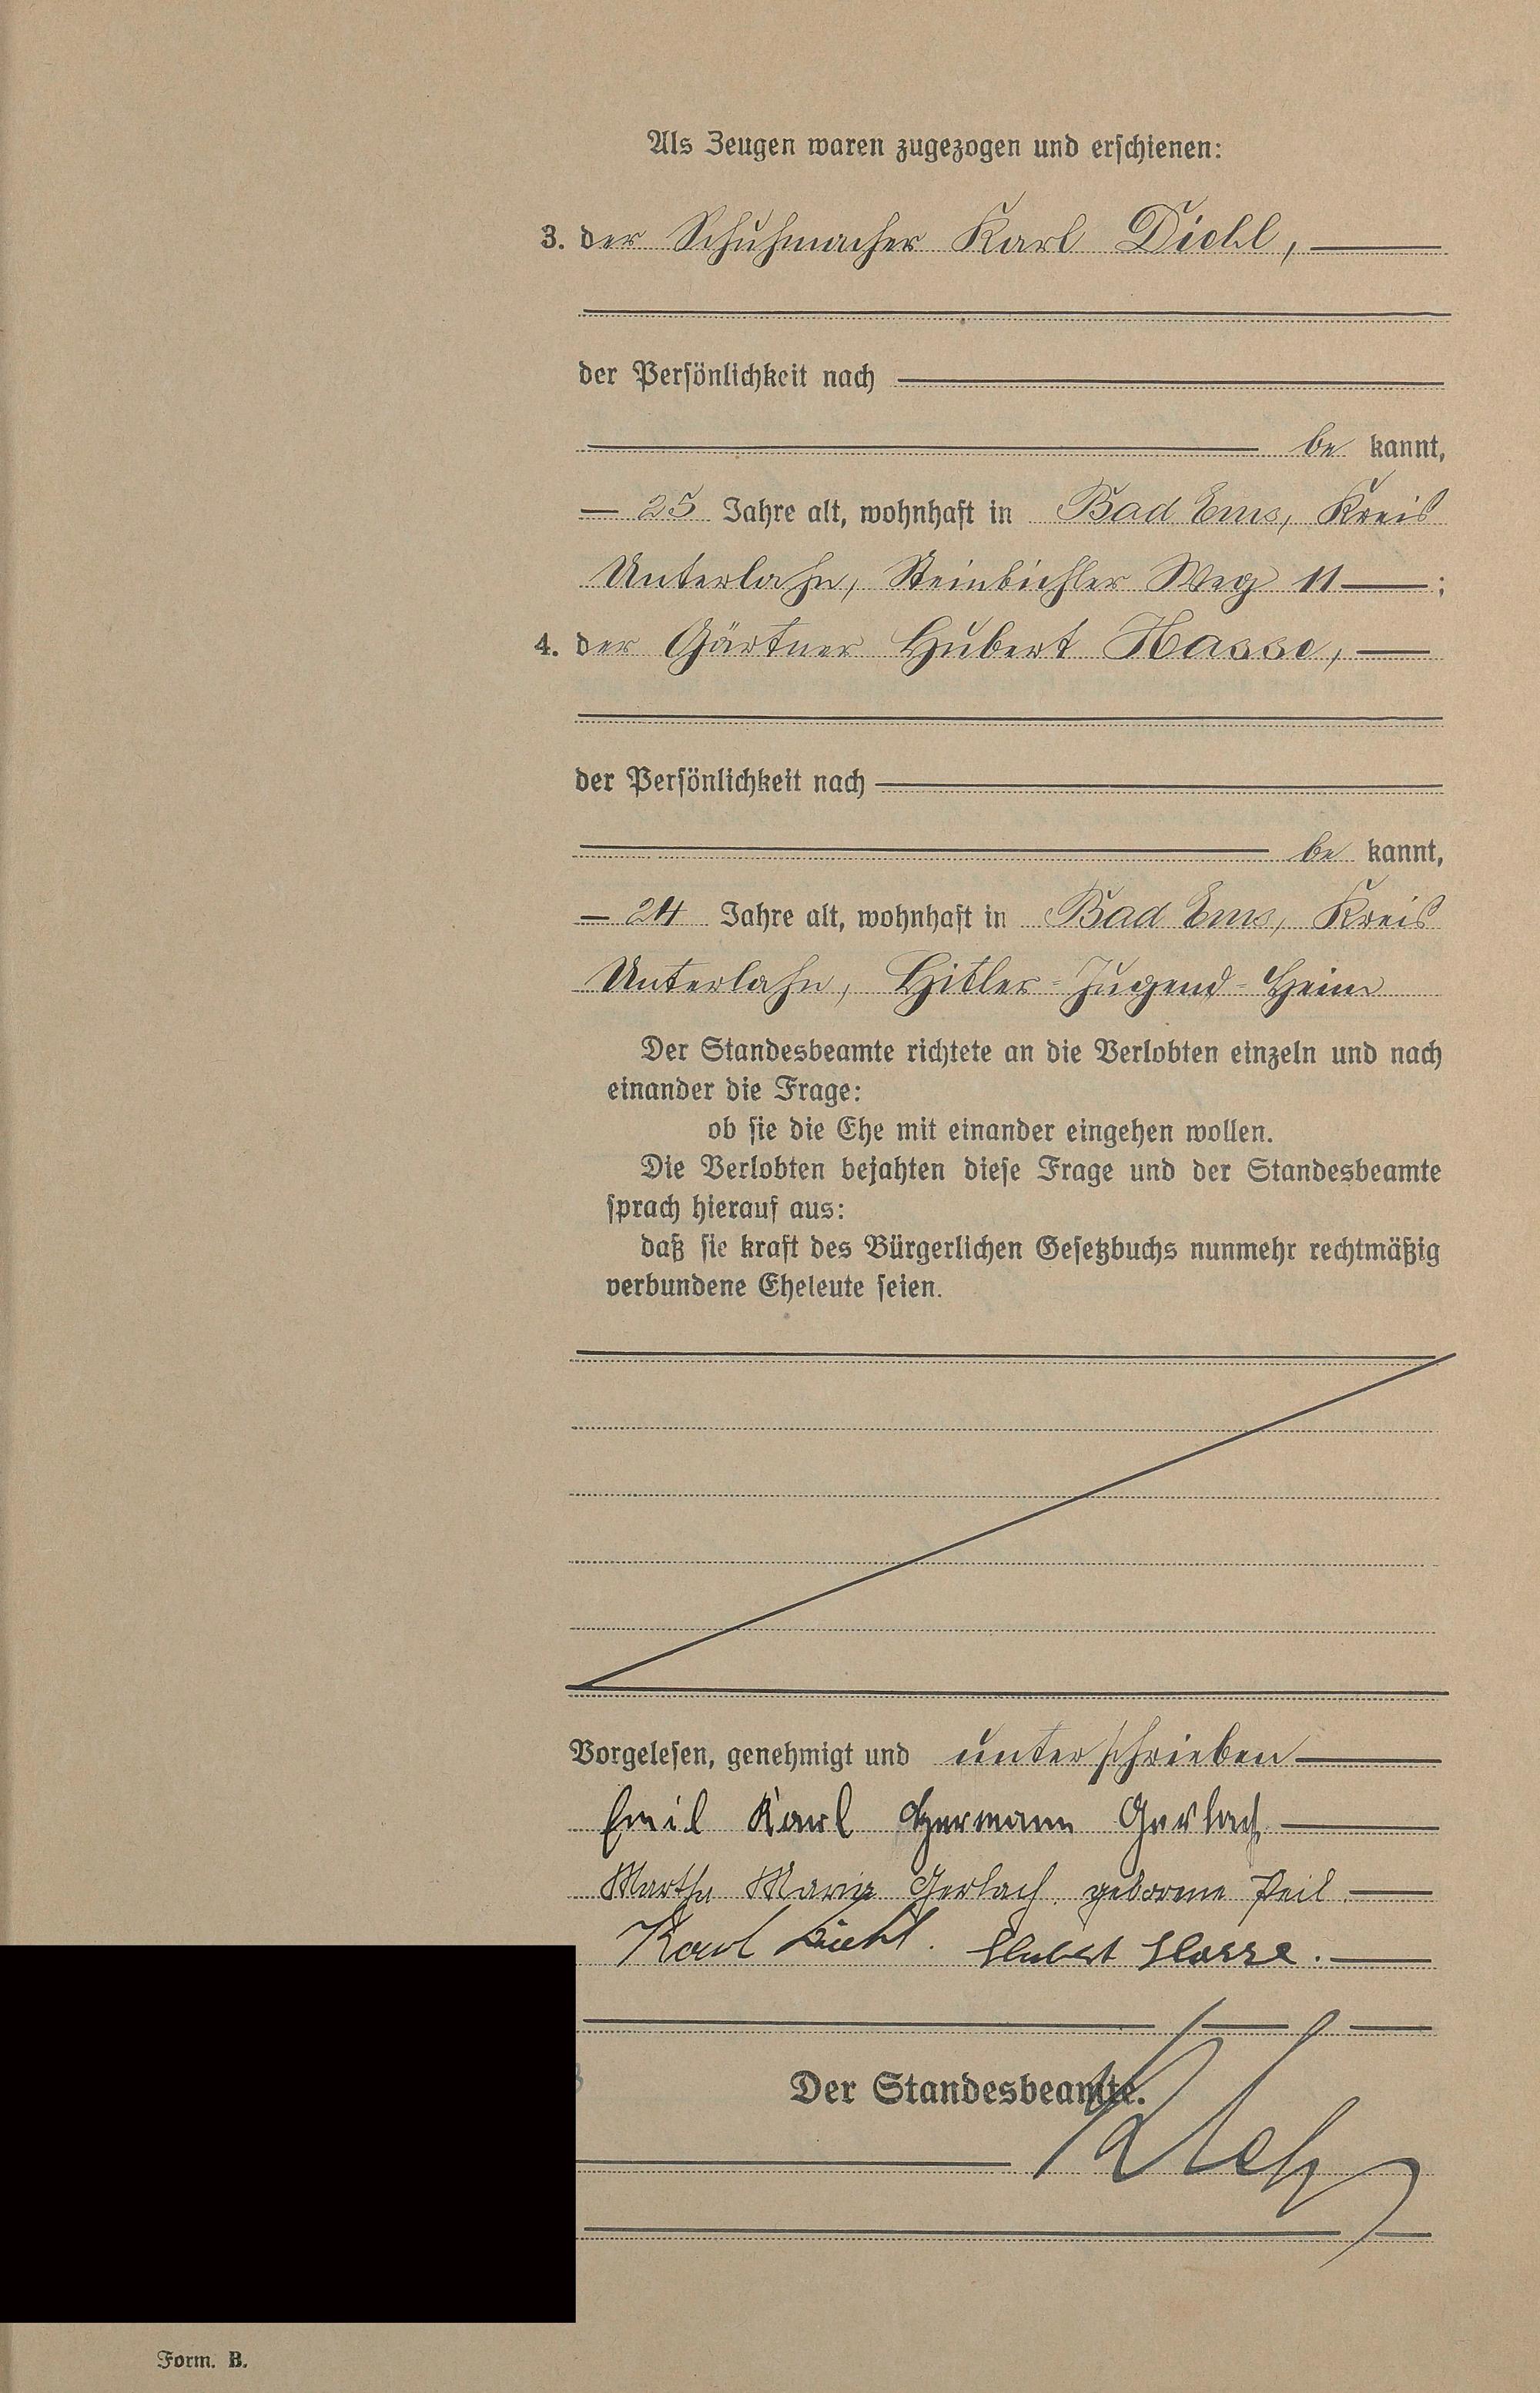 Als Zeugen waren zugezogen und erschienen:
3. der Schuhmacher Karl Diehl,
der Persönlichkeit nach
be kannt,
25 Jahre alt, wohnhaft in Bad Ems, Kreis
Unterlahn, Weg 11 ;
4. der Gärtner Hubert Hasse,
der Persönlichkeit nach
be kannt,
24 Jahre alt, wohnhaft in Bad Ems, Kreis
Unterlahn, Hitler-Jugend-Heim
Der Standesbeamte richtete an die Verlobten einzeln und nach
einander die Frage:
ob sie die Ehe mit einander eingehen wollen.
Die Verlobten bejahten diese Frage und der Standesbeamte
sprach hierauf aus:
daß sie kraft des Bürgerlichen Gesetzbuchs nunmehr rechtmäßig
verbundene Eheleute seien.
Vorgelesen, genehmigt und unterschrieben
Emil Karl Hermann Gerlach
Martha Maria Gerlach, geborene Peil
Karl Diehl. Hubert Hasse.
Der Standesbeamte.
Form. B.